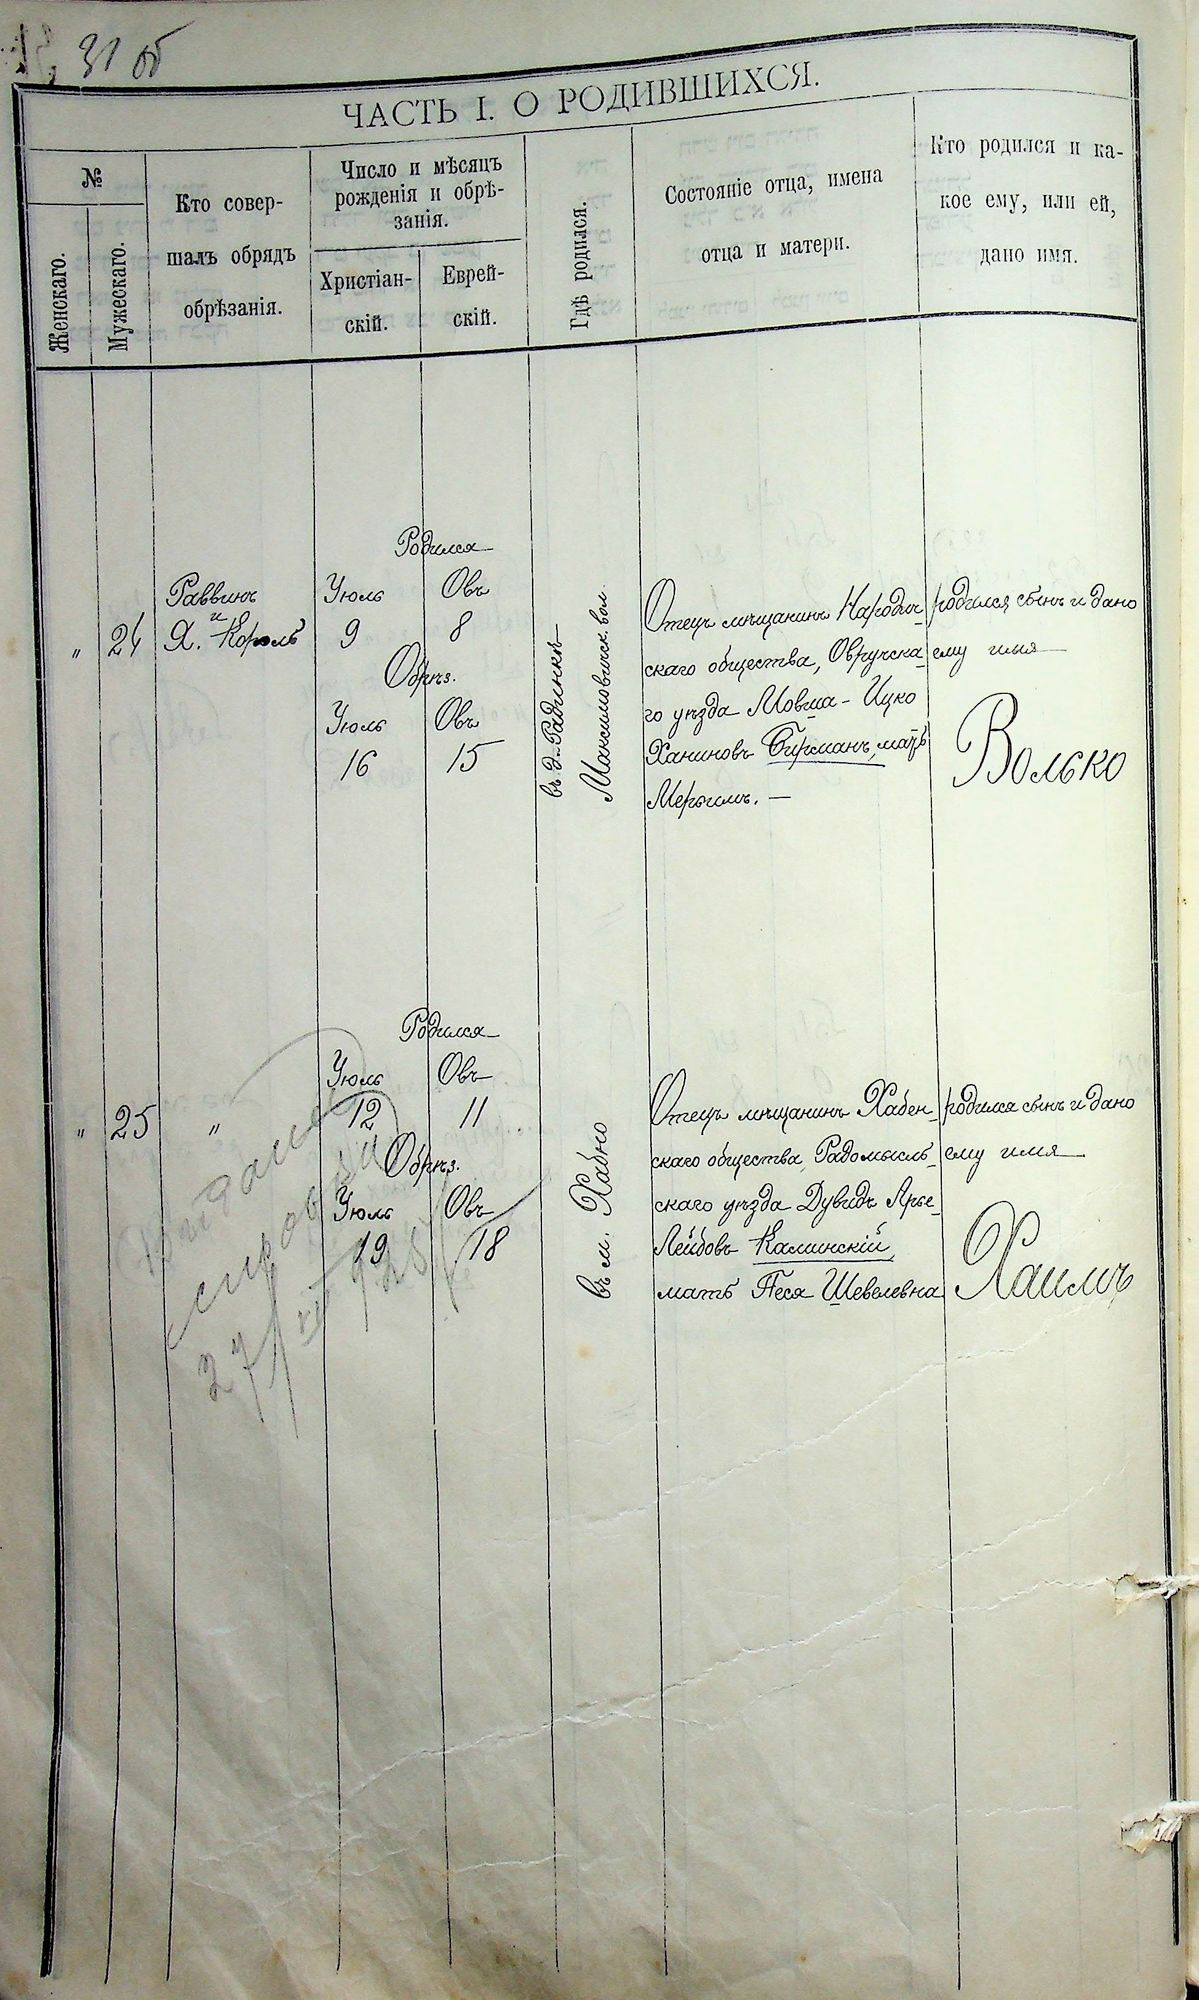 31 об
ЧАСТЬ I. О РОДИВШИХСЯ.
№
Женскаго.
Мужескаго.
Кто совер-
шалъ обрядъ
обрѣзанія.
Число и мѣсяцъ
рожденія и обрѣ-
занія.
Христіан-
скій.
Еврей-
скій.
Гдѣ родился.
Состояніе отца, имена
отца и матери.
Кто родился и ка-
кое ему, или ей,
дано имя.
"
24
Раввинъ
и
Я. Король
Родился
Іюль Овъ
9 8
Обрѣз.
Іюль Овъ
16 15
въ д. Радинкѣ
Максимовичск. вол.
Отецъ мѣщанинъ Народич-
скаго общества, Овручска-
го уѣзда Мовша-Ицко
Ханиновъ Бирманъ, мать
Мерьимъ. —
родился сынъ и дано
ему имя
Волько
"
25
"
Родился
Іюль Овъ
12 11
Обрѣз.
Іюль Овъ
19 18
въ м. Хабно
Отецъ мѣщанинъ Хабен-
скаго общества, Радомысль-
скаго уѣзда Дувидъ Арье-
Лейбовъ Калинскій,
мать Песя Шевелевна
родился сынъ и дано
ему имя
Хаимъ
27/VII 925